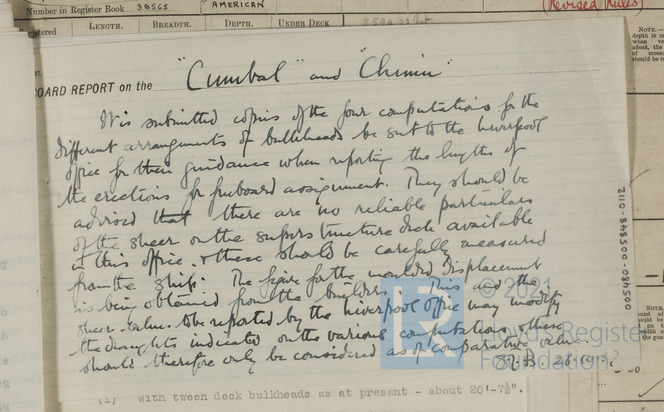 Number in Register Book 38565
AMERICAN
(Revised Rules)
LENGTH. BREADTH. DEPTH. UNDER DECK
OARD REPORT on the "Cumbal" and "Chimu"
It is submitted copies of the four computations for the
different arrangements of bulkheads be sent to the Liverpool
office for their guidance when reporting the lengths of
the erections for freeboard assignment. They should be
advised that there are no reliable particulars
of the sheer on the superstructure deck available
at this office, & these should be carefully measured
from the ship. The figure for the moulded displacement
is being obtained from the builders. This and the
sheer values to be reported by the Liverpool office may modify
the draughts indicated on the various computations & these
should therefore only be considered as of comparative value.
(1) with tween deck bulkheads as at present - about 20'-7½".
005480-005848-0112
© 2021
Lloyd's Register
Foundation
NOTE.